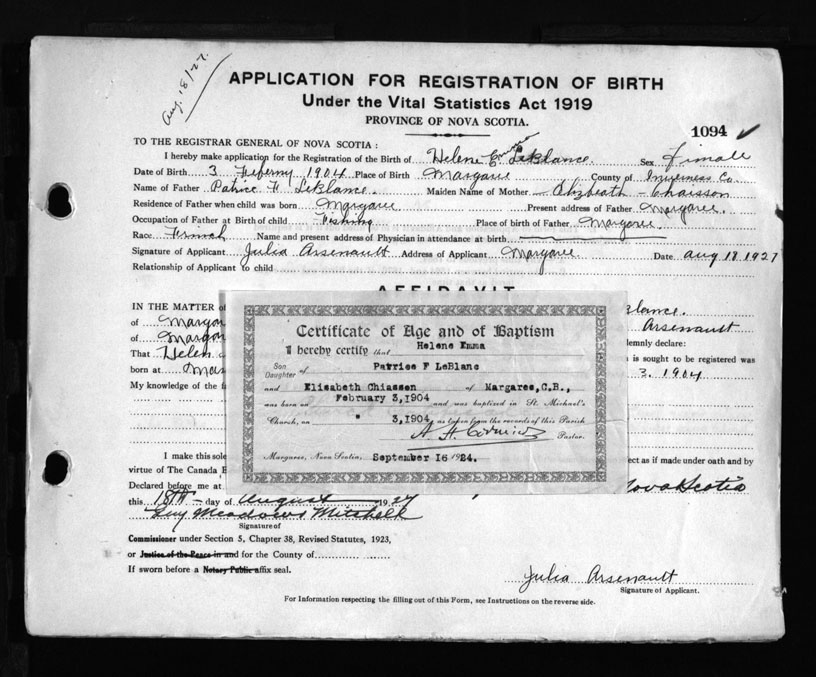 Aug. 18/27.
APPLICATION FOR REGISTRATION OF BIRTH
Under the Vital Statistics Act 1919
PROVINCE OF NOVA SCOTIA.
1094
TO THE REGISTRAR GENERAL OF NOVA SCOTIA :
I hereby make application for the Registration of the Birth of Helene E. LeBlance. Sex Fimale
Date of Birth 3 Feberny 1904 Place of Birth Margarie County of Inverness Co.
Name of Father Patrice F LeBlance. Maiden Name of Mother Chaisson
Residence of Father when child was born Margarie Present address of Father Margarie.
Occupation of Father at Birth of child Fishing Place of birth of Father Margarie.
Race Frinch Name and present address of Physician in attendance at birth
Signature of Applicant Julia Arsenault Address of Applicant Margarie Date Aug 18 1927
Relationship of Applicant to child
AFFIDAVIT
IN THE MATTER of
of Margar Arsenault
of Margar lemnly declare:
That Helen is sought to be registered was
born at Mar 3. 1904
My knowledge of the f
Certificate of Age and of Baptism
I hereby certify that Helene Emma
Son
Daughter of Patrice F LeBlanc
and Elisabeth Chiassen of Margaree, C.B.,
was born on February 3, 1904 and was baptized in St. Michael's
Church, on " 3, 1904 as taken from the records of this Parish
Pastor.
Margaree, Nova Scotia, September 16 1924.
I make this sole ect as if made under oath and by
virtue of The Canada E
Declared before me at Nova Scotia
this 18TH day of August 1927
Guy Meadows Mitchell
Signature of
Commissioner under Section 5, Chapter 38, Revised Statutes, 1923,
or Justice of the Peace in and for the County of
If sworn before a Notary Public affix seal.
Julia Arsenault
Signature of Applicant.
For Information respecting the filling out of this Form, see Instructions on the reverse side.